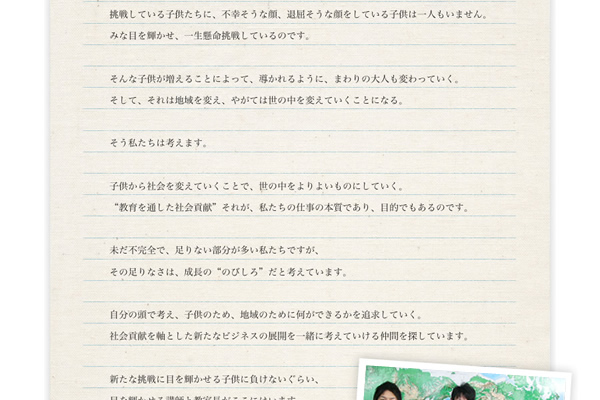 挑戦している子供たちに、不幸そうな顔、退屈そうな顔をしている子供は一人もいません。
みな目を輝かせ、一生懸命挑戦しているのです。
そんな子供が増えることによって、導かれるように、まわりの大人も変わっていく。
そして、それは地域を変え、やがては世の中を変えていくことになる。
そう私たちは考えます。
子供から社会を変えていくことで、世の中をよりよいものにしていく。
“教育を通した社会貢献”それが、私たちの仕事の本質であり、目的でもあるのです。
未だ不完全で、足りない部分が多い私たちですが、
その足りなさは、成長の“のびしろ”だと考えています。
自分の頭で考え、子供のため、地域のために何ができるかを追求していく。
社会貢献を軸とした新たなビジネスの展開を一緒に考えていける仲間を探しています。
新たな挑戦に目を輝かせる子供に負けないぐらい、
目を輝かせる講師と教室長がここにはいます。